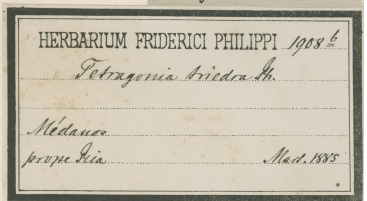 HERBARIUM FRIDERICI PHILIPPI 1908 6
Tetragonia triedra Ph.
Médanos
prope Ica Mart. 1885